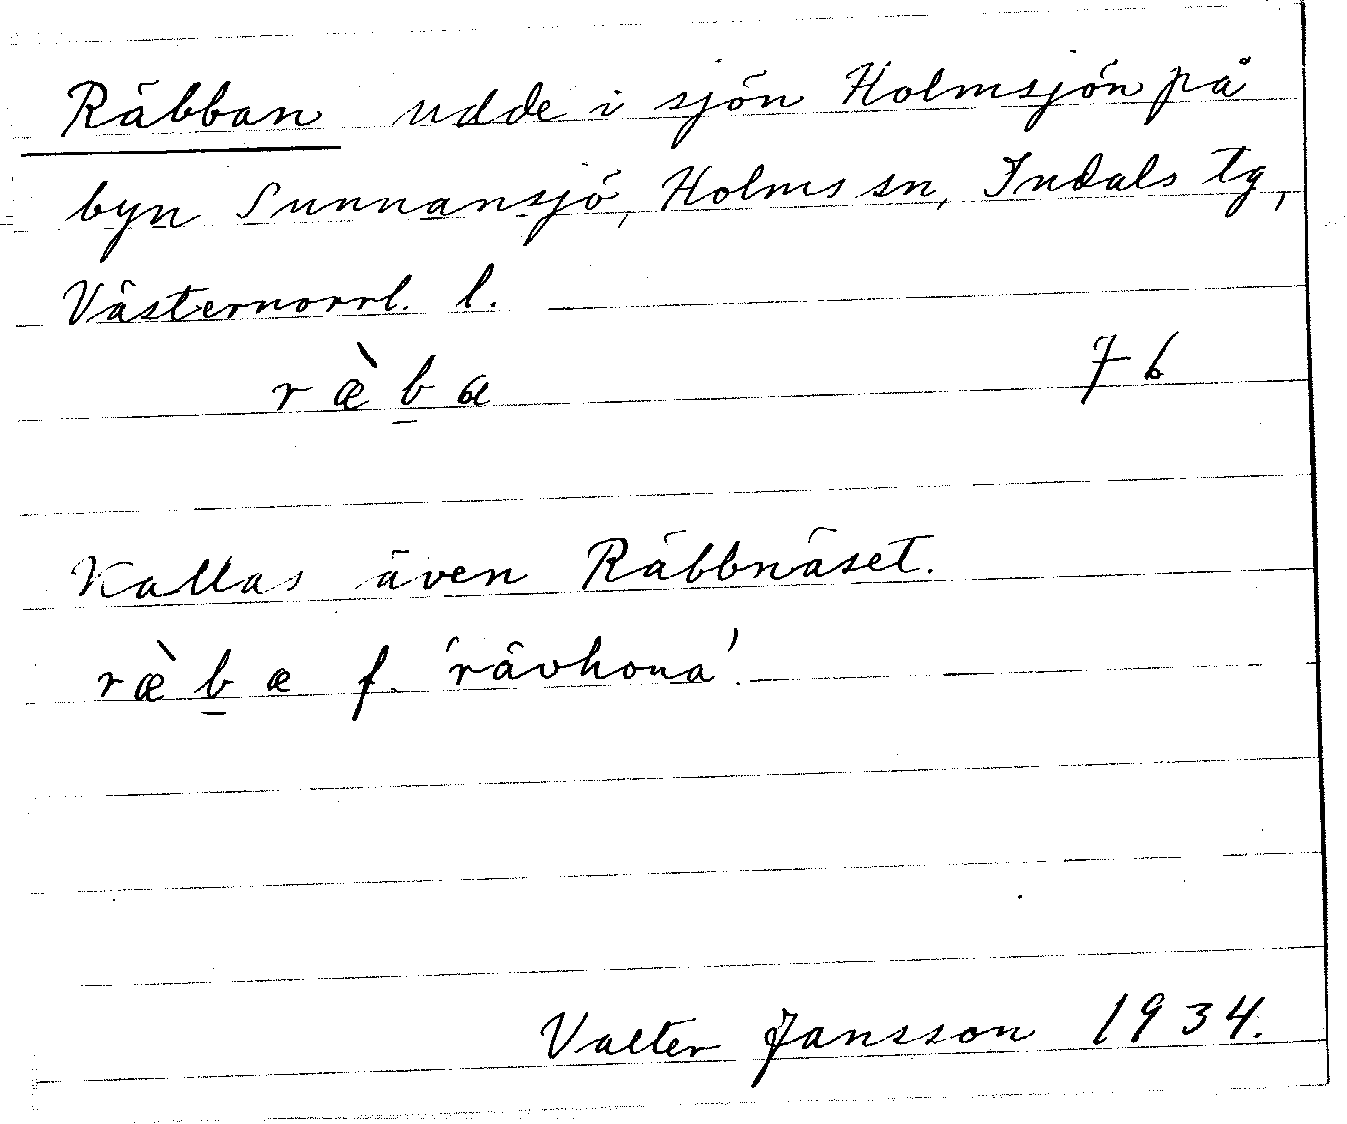 Räbban udde i sjön Holmsjön på
byn Sunnansjö, Holms sn, Indals tg,
Västernorrl. l.
ræ̀b̲a 76
Kallas även Räbbnäset.
ræ̀b̲æ f. 'rävhona'.
Valter Jansson 1934.